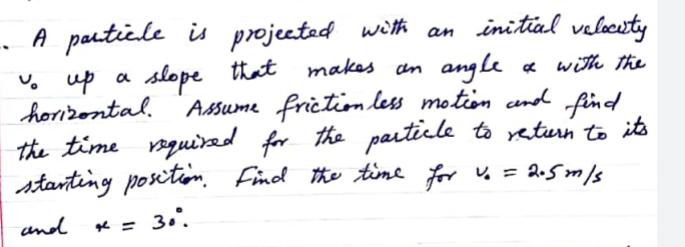 . A particle is projected with an initial velocity
v₀ up a slope that makes an angle α with the
horizontal. Assume frictionless motion and find
the time required for the particle to return to its
starting position. Find the time for v₀ = 2.5 m/s
and α = 30°.